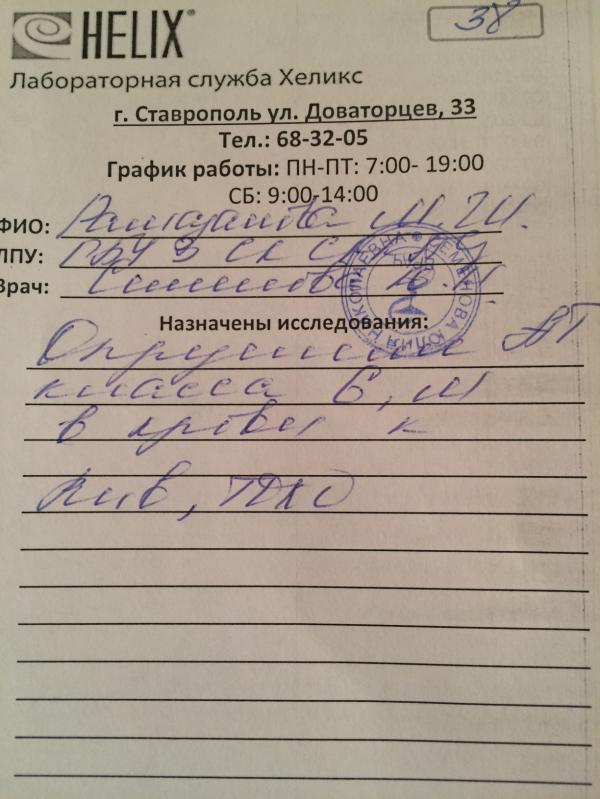 38
HELIX®
Лабораторная служба Хеликс
г. Ставрополь ул. Доваторцев, 33
Тел.: 68-32-05
График работы: ПН-ПТ: 7:00- 19:00
СБ: 9:00-14:00
ФИО: М.Ш.
ЛПУ: ГБУЗ СК
Врач: Ю.Н.
СЕМЕНОВА ЮЛИЯ НИКОЛАЕВНА
Назначены исследования:
АТ
класса G, M
в крови к